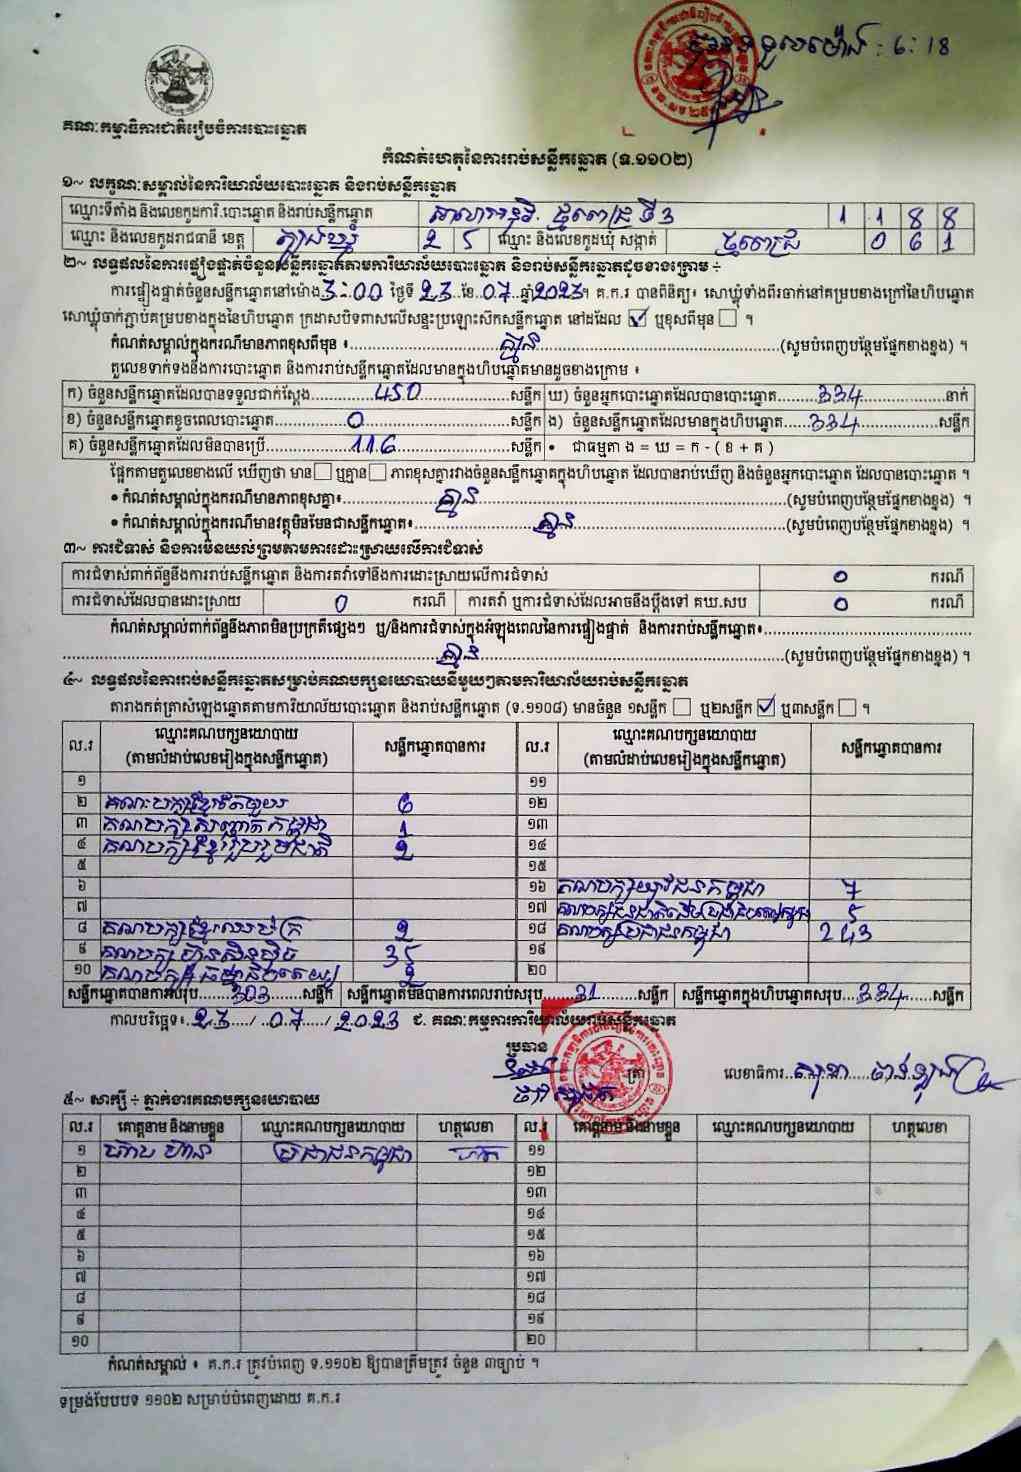 ម៉ោង : 6:18
គណៈកម្មាធិការជាតិរៀបចំការបោះឆ្នោត
កំណត់ហេតុនៃការរាប់សន្លឹកឆ្នោត (ទ.១១០២)
១~ លក្ខណៈសម្គាល់នៃការិយាល័យបោះឆ្នោត និងរាប់សន្លឹកឆ្នោត
ឈ្មោះទីតាំង និងលេខកូដការិ.បោះឆ្នោត និងរាប់សន្លឹកឆ្នោត 1 1 8 8
ឈ្មោះ និងលេខកូដរាជធានី ខេត្ត ត្បូងឃ្មុំ 2 5 ឈ្មោះ និងលេខកូដឃុំ សង្កាត់ 0 6 1
២~ លទ្ធផលនៃការផ្ទៀងផ្ទាត់ចំនួនសន្លឹកឆ្នោតតាមការិយាល័យបោះឆ្នោត និងរាប់សន្លឹកឆ្នោតដូចខាងក្រោម ÷
ការផ្ទៀងផ្ទាត់ចំនួនសន្លឹកឆ្នោតនៅម៉ោង 3:00 ថ្ងៃទី 23 ខែ 07 ឆ្នាំ 2023 ។ គ.ក.រ បានពិនិត្យ៖ សោឃ្លុំទាំងពីរចាក់នៅគម្របខាងក្រៅនៃហិបឆ្នោត
សោឃ្លុំចាក់ភ្ជាប់គម្របខាងក្នុងនៃហិបឆ្នោត ក្រដាសបិទពាសលើសន្ទះប្រឡោះស៊កសន្លឹកឆ្នោត នៅដដែល ☑ ឬខុសពីមុន ☐ ។
កំណត់សម្គាល់ក្នុងករណីមានភាពខុសពីមុន ៖ គ្មាន (សូមបំពេញបន្ថែមផ្នែកខាងខ្នង) ។
តួលេខទាក់ទងនឹងការបោះឆ្នោត និងការរាប់សន្លឹកឆ្នោតដែលមានក្នុងហិបឆ្នោតមានដូចខាងក្រោម ៖
ក) ចំនួនសន្លឹកឆ្នោតដែលបានទទួលជាក់ស្តែង 450 សន្លឹក ឃ) ចំនួនអ្នកបោះឆ្នោតដែលបានបោះឆ្នោត 334 នាក់
ខ) ចំនួនសន្លឹកឆ្នោតខូចពេលបោះឆ្នោត 0 សន្លឹក ង) ចំនួនសន្លឹកឆ្នោតដែលមានក្នុងហិបឆ្នោត 334 សន្លឹក
គ) ចំនួនសន្លឹកឆ្នោតដែលមិនបានប្រើ 116 សន្លឹក • ជាធម្មតា ង = ឃ = ក - ( ខ + គ )
ផ្អែកតាមតួលេខខាងលើ ឃើញថា មាន ☐ ឬគ្មាន ☐ ភាពខុសគ្នារវាងចំនួនសន្លឹកឆ្នោតក្នុងហិបឆ្នោត ដែលបានរាប់ឃើញ និងចំនួនអ្នកបោះឆ្នោត ដែលបានបោះឆ្នោត ។
• កំណត់សម្គាល់ក្នុងករណីមានភាពខុសគ្នា៖ គ្មាន (សូមបំពេញបន្ថែមផ្នែកខាងខ្នង) ។
• កំណត់សម្គាល់ក្នុងករណីមានវត្ថុមិនមែនជាសន្លឹកឆ្នោត៖ គ្មាន (សូមបំពេញបន្ថែមផ្នែកខាងខ្នង) ។
៣~ ការជំទាស់ និងការមិនយល់ព្រមតាមការដោះស្រាយលើការជំទាស់
ការជំទាស់ពាក់ព័ន្ធនឹងការរាប់សន្លឹកឆ្នោត និងការតវ៉ាទៅនឹងការដោះស្រាយលើការជំទាស់ 0 ករណី
ការជំទាស់ដែលបានដោះស្រាយ 0 ករណី ការតវ៉ា ឬការជំទាស់ដែលអាចនឹងប្តឹងទៅ គឃ.សប 0 ករណី
កំណត់សម្គាល់ពាក់ព័ន្ធនឹងភាពមិនប្រក្រតីផ្សេងៗ ឬ/និងការជំទាស់ក្នុងអំឡុងពេលនៃការផ្ទៀងផ្ទាត់ និងការរាប់សន្លឹកឆ្នោត៖
គ្មាន (សូមបំពេញបន្ថែមផ្នែកខាងខ្នង) ។
៤~ លទ្ធផលនៃការរាប់សន្លឹកឆ្នោតសម្រាប់គណបក្សនយោបាយនីមួយៗតាមការិយាល័យរាប់សន្លឹកឆ្នោត
តារាងកត់ត្រាសំឡេងឆ្នោតតាមការិយាល័យបោះឆ្នោត និងរាប់សន្លឹកឆ្នោត (ទ.១១០៨) មានចំនួន ១សន្លឹក ☐ ឬ២សន្លឹក ☑ ឬ៣សន្លឹក ☐ ។
ល.រ ឈ្មោះគណបក្សនយោបាយ (តាមលំដាប់លេខរៀងក្នុងសន្លឹកឆ្នោត) សន្លឹកឆ្នោតបានការ ល.រ ឈ្មោះគណបក្សនយោបាយ (តាមលំដាប់លេខរៀងក្នុងសន្លឹកឆ្នោត) សន្លឹកឆ្នោតបានការ
១ ១១
២ គណបក្សខ្មែរតែមួយ 6 ១២
៣ គណបក្ស កម្ពុជា 1 ១៣
៤ គណបក្សខ្មែររួបរួមជាតិ 2 ១៤
៥ ១៥
៦ ១៦ គណបក្សយុវជនកម្ពុជា 7
៧ ១៧ 5
៨ គណបក្សខ្មែរឈប់ក្រ 2 ១៨ គណបក្សប្រជាជនកម្ពុជា 243
៩ គណបក្សហ៊្វុនស៊ិនប៉ិច 35 ១៩
១០ 2 ២០
សន្លឹកឆ្នោតបានការសរុប 303 សន្លឹក សន្លឹកឆ្នោតមិនបានការពេលរាប់សរុប 31 សន្លឹក សន្លឹកឆ្នោតក្នុងហិបឆ្នោតសរុប 334 សន្លឹក
កាលបរិច្ឆេទ៖ 23 / 07 / 2023 ជ. គណៈកម្មការការិយាល័យរាប់សន្លឹកឆ្នោត
ប្រធាន
ត្រា លេខាធិការ
៥~ សាក្សី ÷ ភ្នាក់ងារគណបក្សនយោបាយ
ល.រ គោត្តនាម និងនាមខ្លួន ឈ្មោះគណបក្សនយោបាយ ហត្ថលេខា ល.រ គោត្តនាម និងនាមខ្លួន ឈ្មោះគណបក្សនយោបាយ ហត្ថលេខា
១ ប្រជាជនកម្ពុជា ១១
២ ១២
៣ ១៣
៤ ១៤
៥ ១៥
៦ ១៦
៧ ១៧
៨ ១៨
៩ ១៩
១០ ២០
កំណត់សម្គាល់ ៖ គ.ក.រ ត្រូវបំពេញ ទ.១១០២ ឱ្យបានត្រឹមត្រូវ ចំនួន ៣ច្បាប់ ។
ទម្រង់បែបបទ ១១០២ សម្រាប់បំពេញដោយ គ.ក.រ